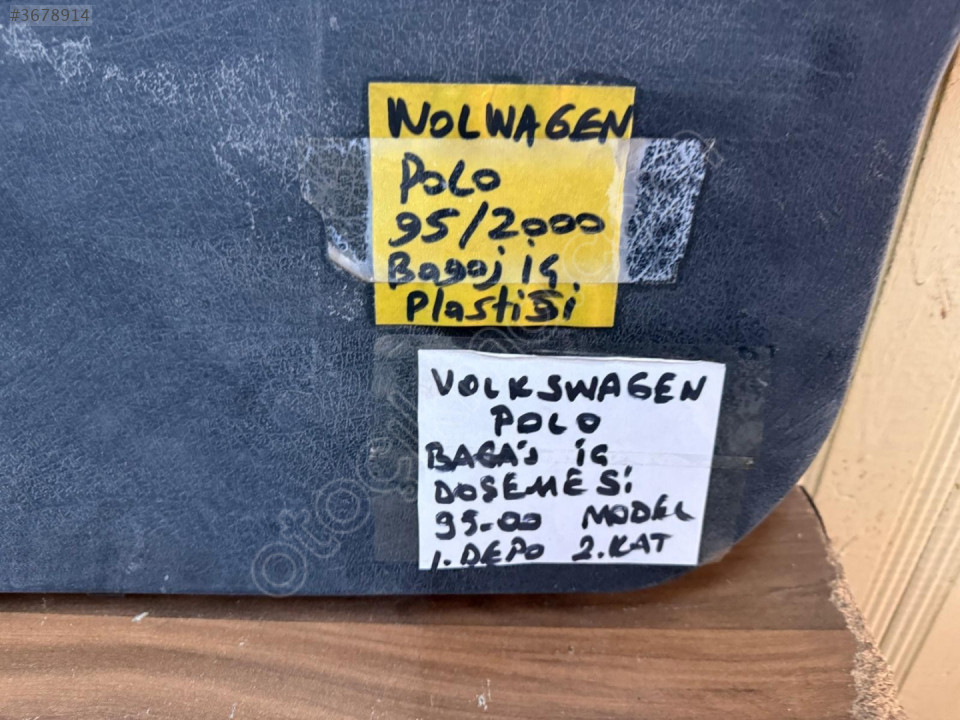 #3678914
WOLWAGEN
POLO
95/2.000
Bagaj iç
Plastiği
VOLKSWAGEN
POLO
BAGAJ iÇ
DOŞEMESİ
95-00 MODEL
1.DEPO 2.KAT